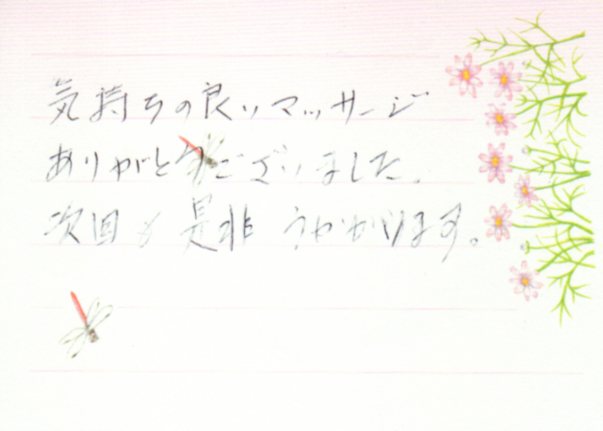 気持ちの良いマッサージ
ありがとうございました。
次回も是非うかがいます。